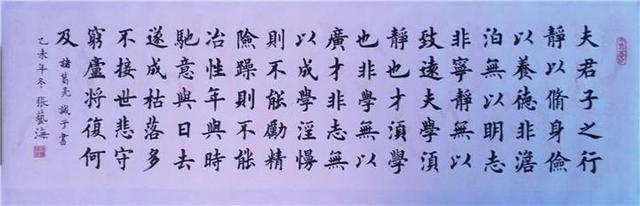 夫君子之行
靜以脩身儉
以養德非澹
泊無以明志
非寧靜無以
致遠夫學須
靜也才須學
也非學無以
廣才非志無
以成學淫慢
則不能勵精
險躁則不能
冶性年與時
馳意與日去
遂成枯落多
不接世悲守
窮廬將復何
及
諸葛亮 誡子書
乙未年冬 張藝海